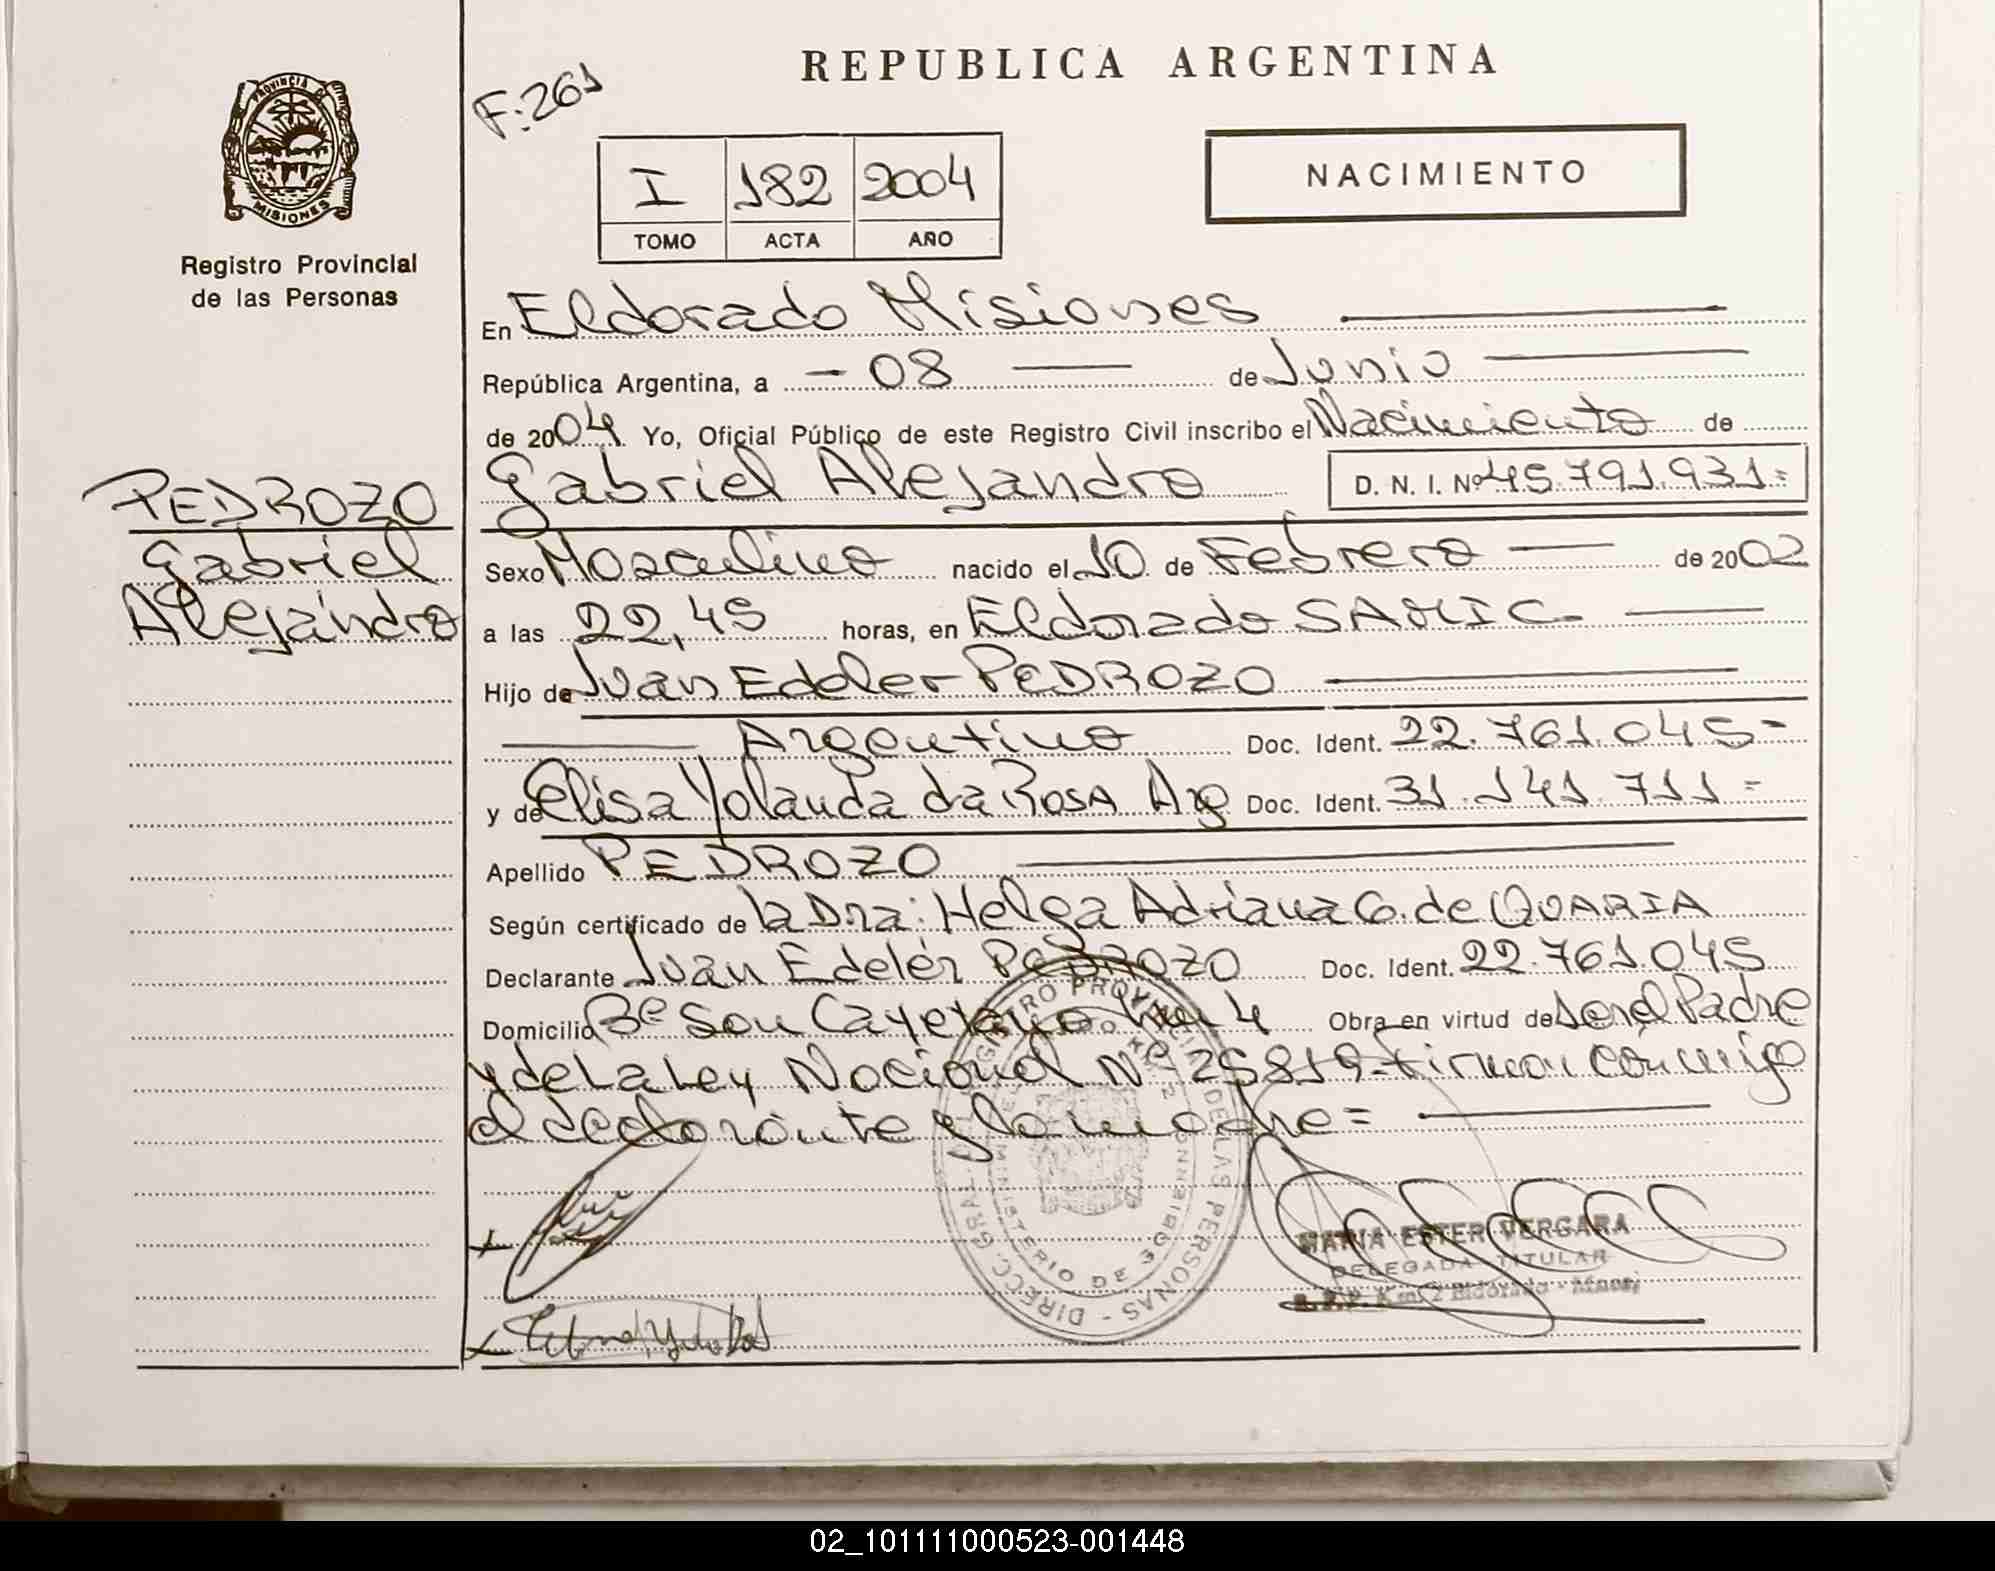 PROVINCIA DE
MISIONES
Registro Provincial
de las Personas
REPUBLICA ARGENTINA
F:261
I 182 2004
TOMO ACTA AÑO
NACIMIENTO
En Eldorado Misiones
República Argentina, a - 08 — de Junio
de 2004 Yo, Oficial Público de este Registro Civil inscribo el Nacimiento de
PEDROZO
Gabriel
Alejandro
Gabriel Alejandro D. N. I. Nº 45.791.931=
Sexo Masculino nacido el 10 de Febrero — de 2002
a las 22,45 horas, en Eldorado SAMIC
Hijo de Juan Edeler PEDROZO
Argentino Doc. Ident. 22.761.045=
y de Elisa Yolanda da ROSA Arg Doc. Ident. 31.141.711=
Apellido PEDROZO
Según certificado de la Dra: Helga Adriana G. de QUARIA
Declarante Juan Edelér PEDROZO Doc. Ident. 22.761.045
Domicilio Bº San Cayetano Km 4 Obra en virtud de ser el Padre
y de La Ley Nacional Nº 25819-Firman conmigo
el declarante y la madre=
REGISTRO PROVINCIAL DE LAS PERSONAS - DIRECC. GRAL.
MINISTERIO DE GOBIERNO
MARIA ESTER VERGARA
DELEGADA TITULAR
R.P.P. Km. 2 Eldorado - Mnes
02_101111000523-001448